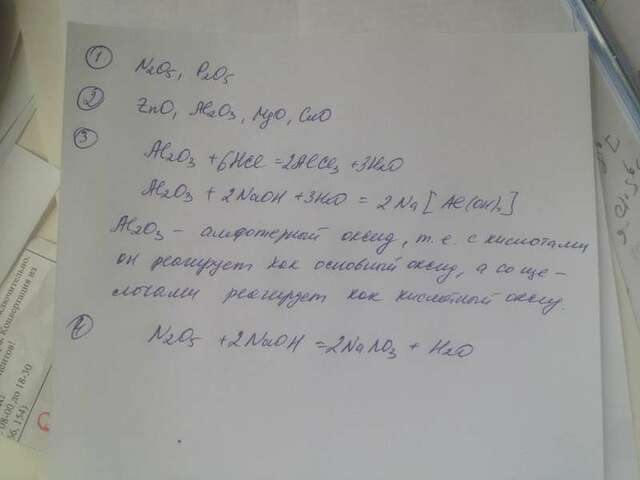 лючительно.
я. Конвертация из
циентов!
08-00 до 18-30
56, 154)
① N2O5, P2O5
② ZnO, Al2O3, MgO, CuO
③ Al2O3 + 6HCl = 2AlCl3 + 3H2O
Al2O3 + 2NaOH + 3H2O = 2Na[Al(OH)4]
Al2O3 - амфотерный оксид, т.е. с кислотами
он реагирует как основный оксид, а со ще-
лочами реагирует как кислотный оксид.
N2O5 + 2NaOH = 2NaNO3 + H2O